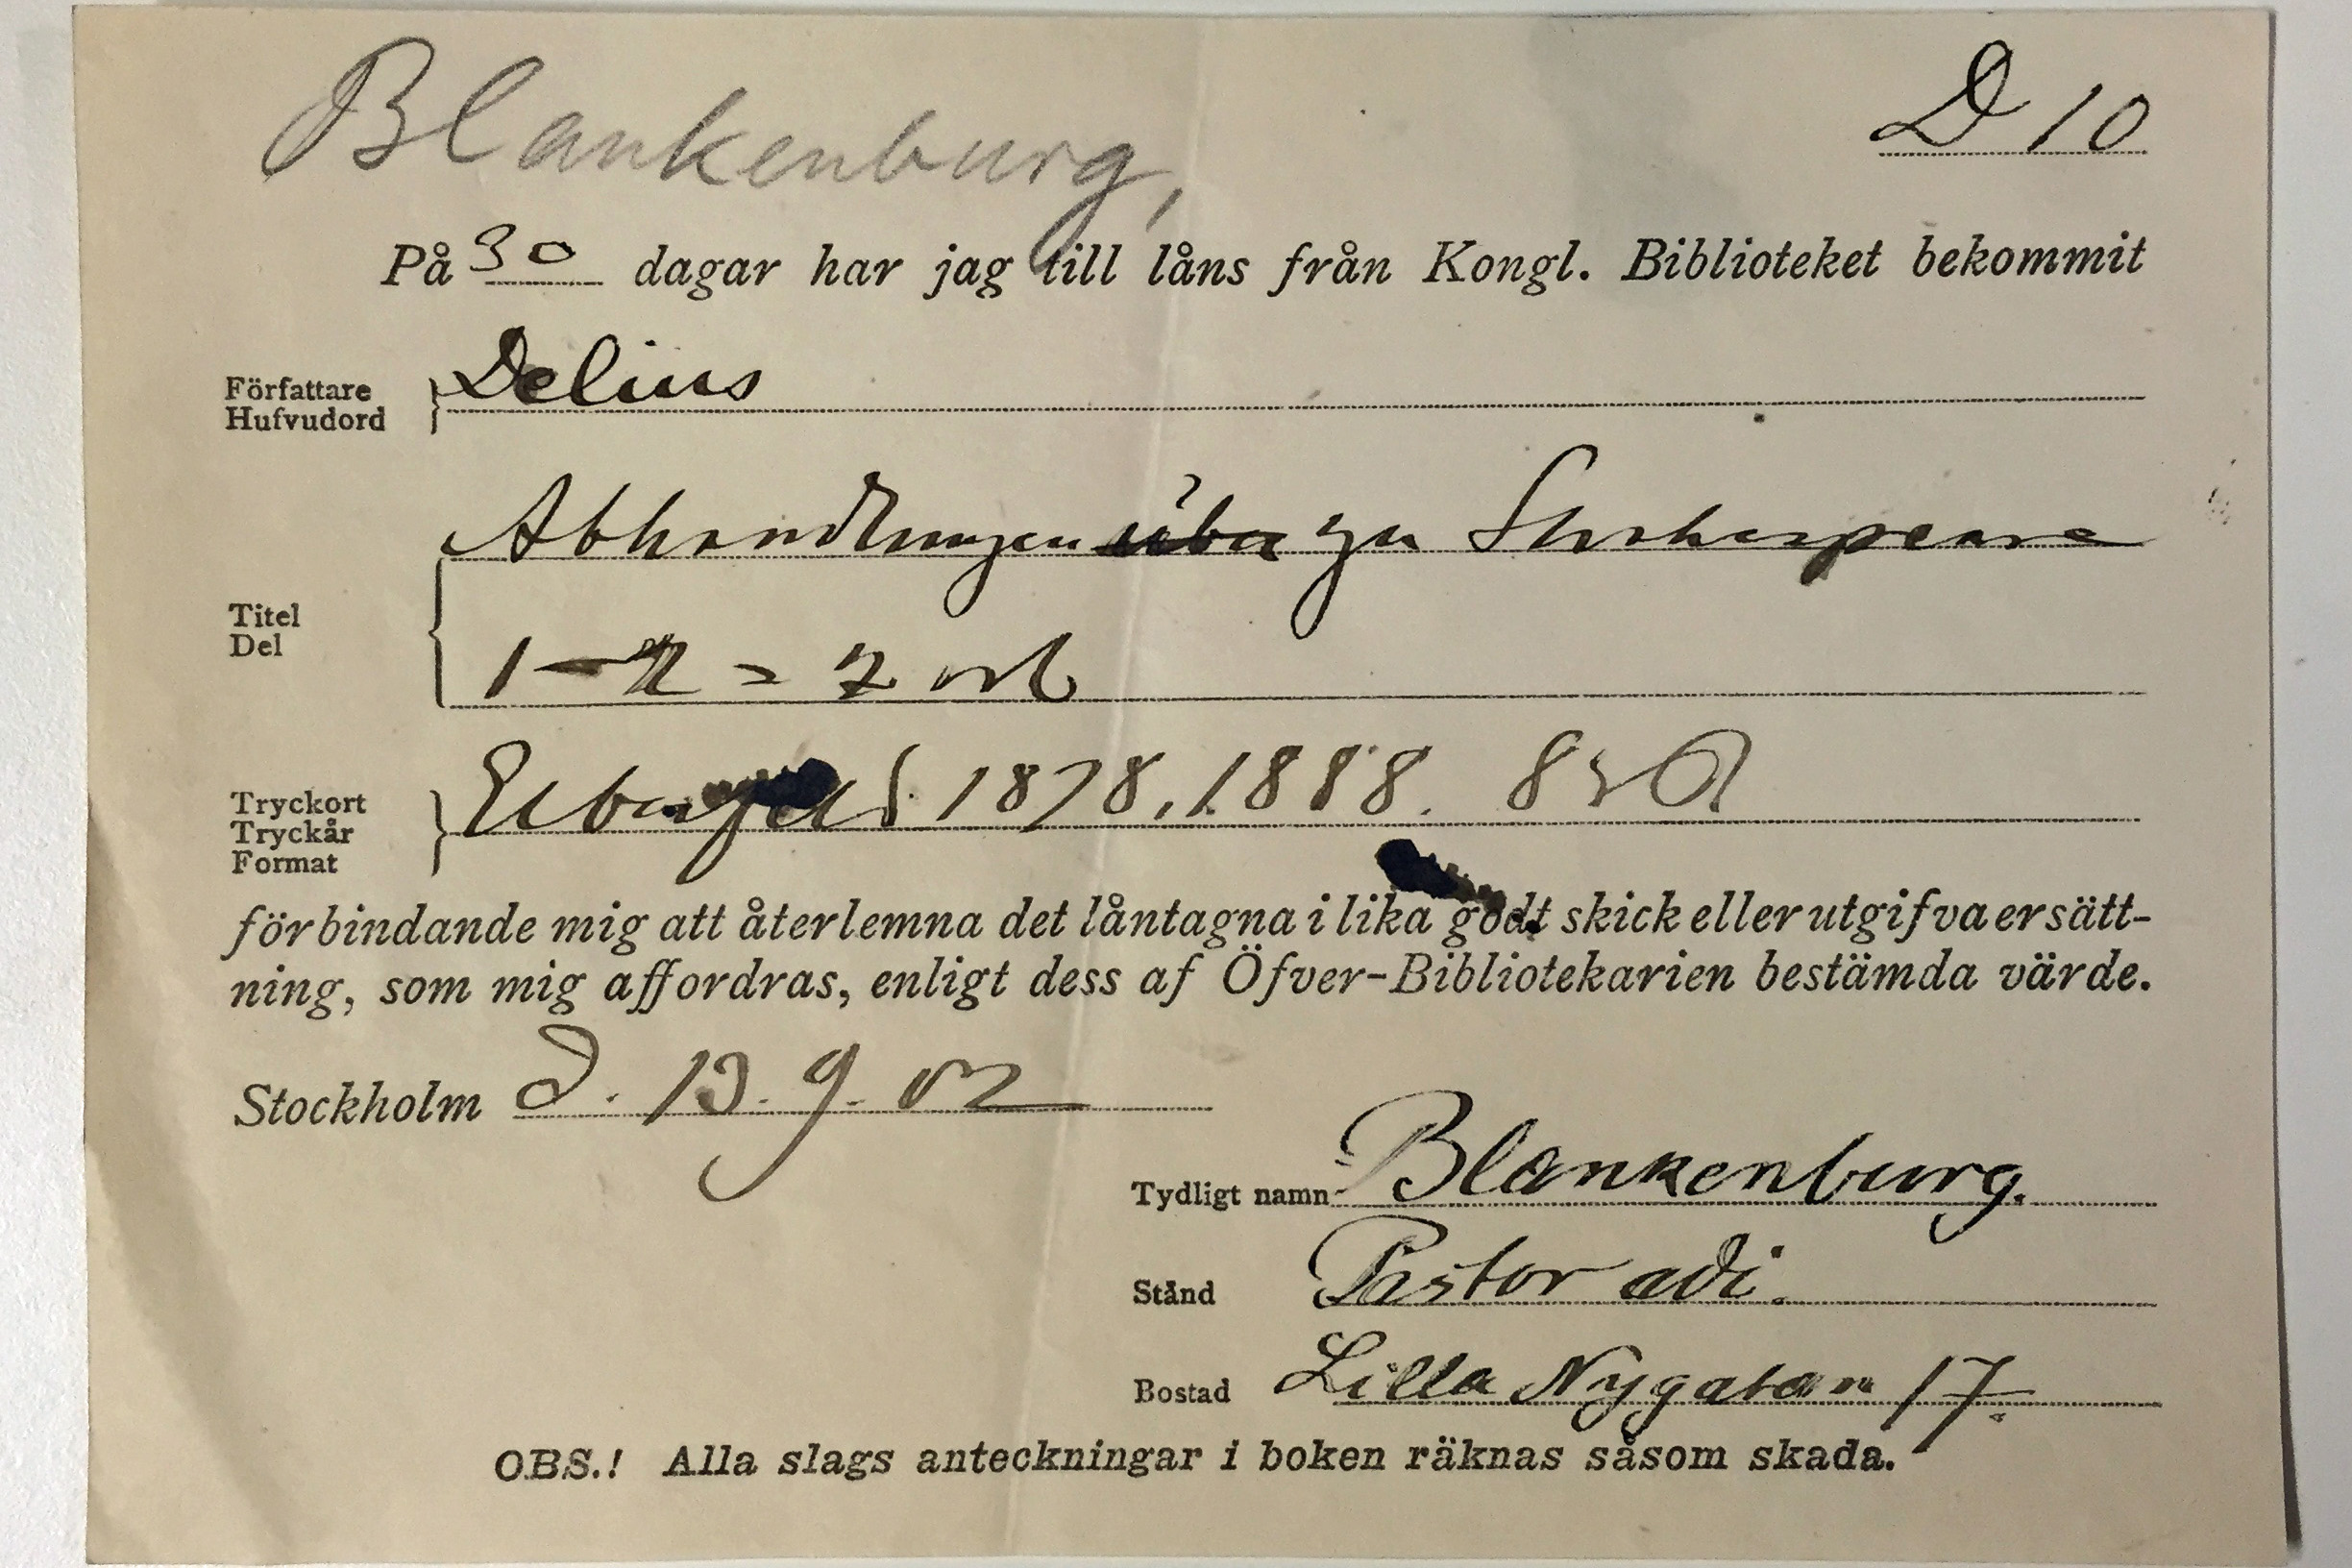 Blankenburg,
D 10
På 30 dagar har jag till låns från Kongl. Biblioteket bekommit
Författare
Hufvudord
Delius
Abhandlungen über zu Shakespeare
Titel
Del
1-2 = 2 vol
Elberfeld 1878, 1888. 8:o
Tryckort
Tryckår
Format
förbindande mig att återlemna det låntagna i lika godt skick eller utgifva ersätt-
ning, som mig affordras, enligt dess af Öfver-Bibliotekarien bestämda värde.
Stockholm d. 13. 9. 02
Tydligt namn Blankenburg.
Stånd Pastor adi.
Bostad Lilla Nygatan 17.
OBS.! Alla slags anteckningar i boken räknas såsom skada.